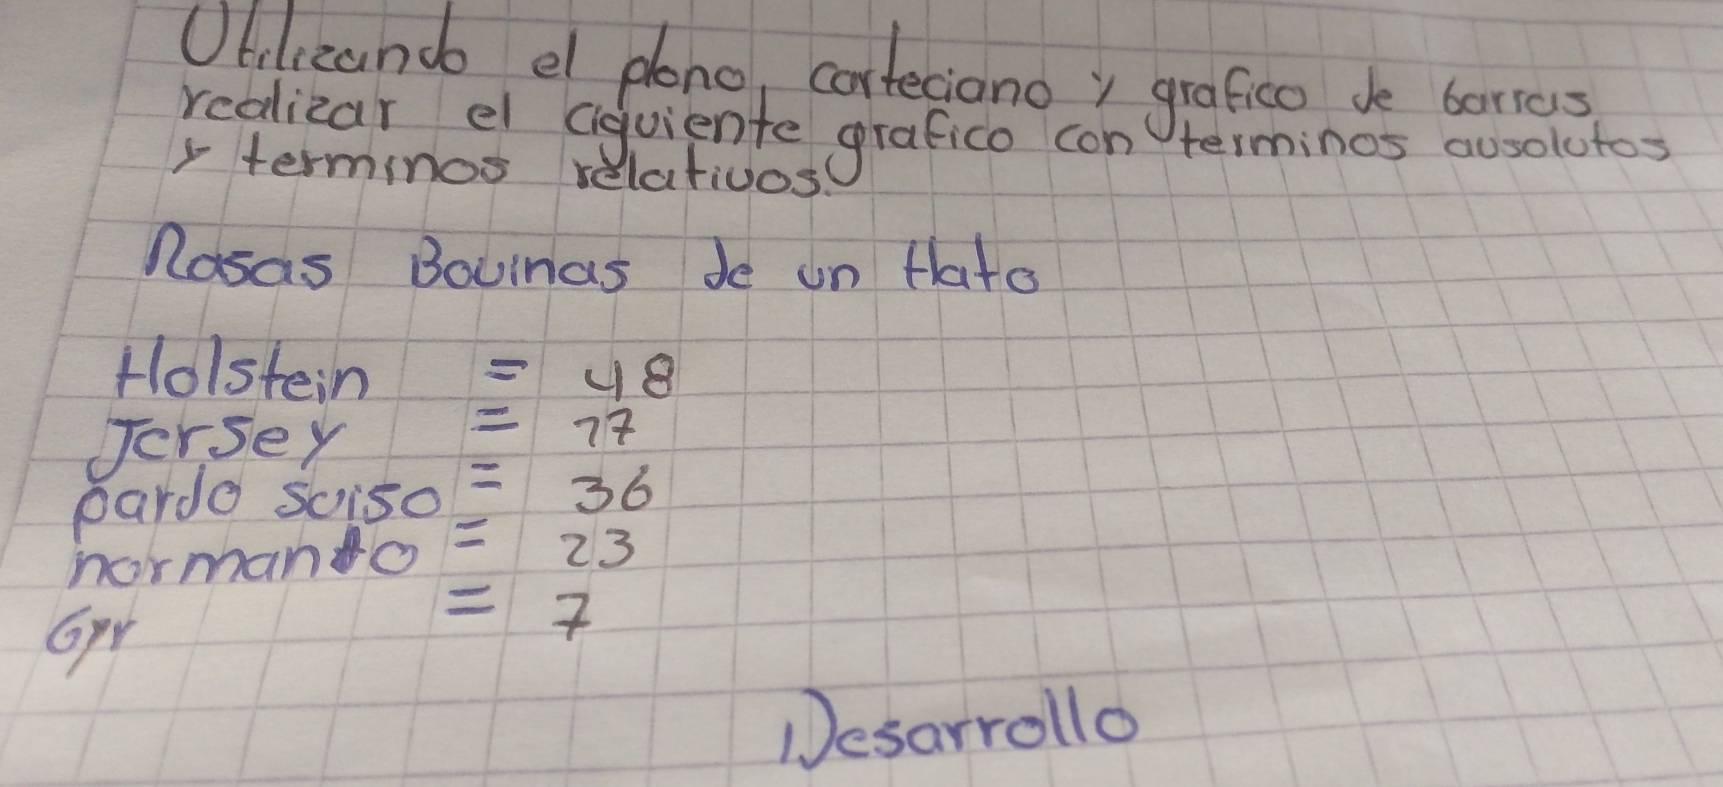 Utilizando el plano, carteciano y grafico de barras
realizar el ciguiente grafico con terminos ausolutos
y terminos relativos.
Rasas Bovinas de un Hato
Holstein = 48
Jersey = 17
pardo suiso = 36
normando = 23
Gyr = 7
Desarrollo